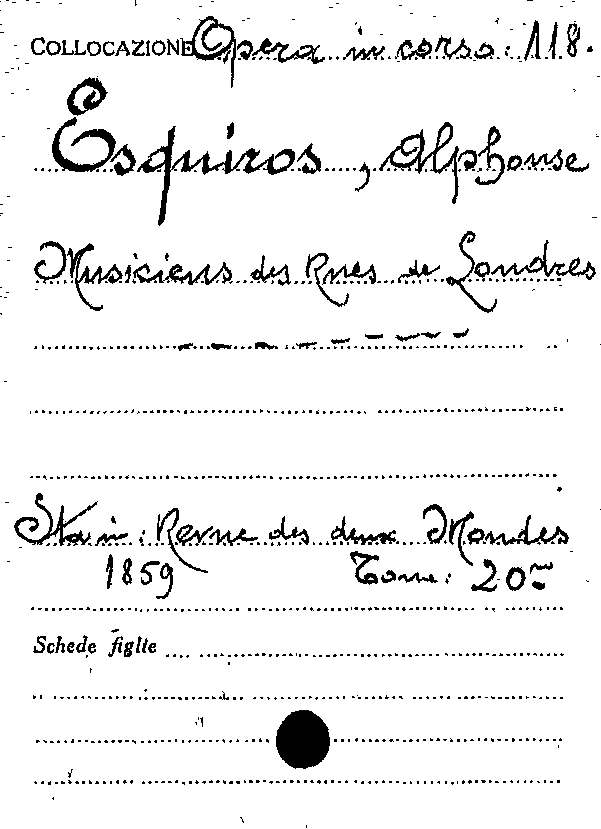 COLLOCAZIONE Opera in corso: 118.
Esquiros, Alphonse
Musiciens des Rues de Londres
Sta in: Revue des deux Mondes
1859 Tome: 20me
Schede figlie